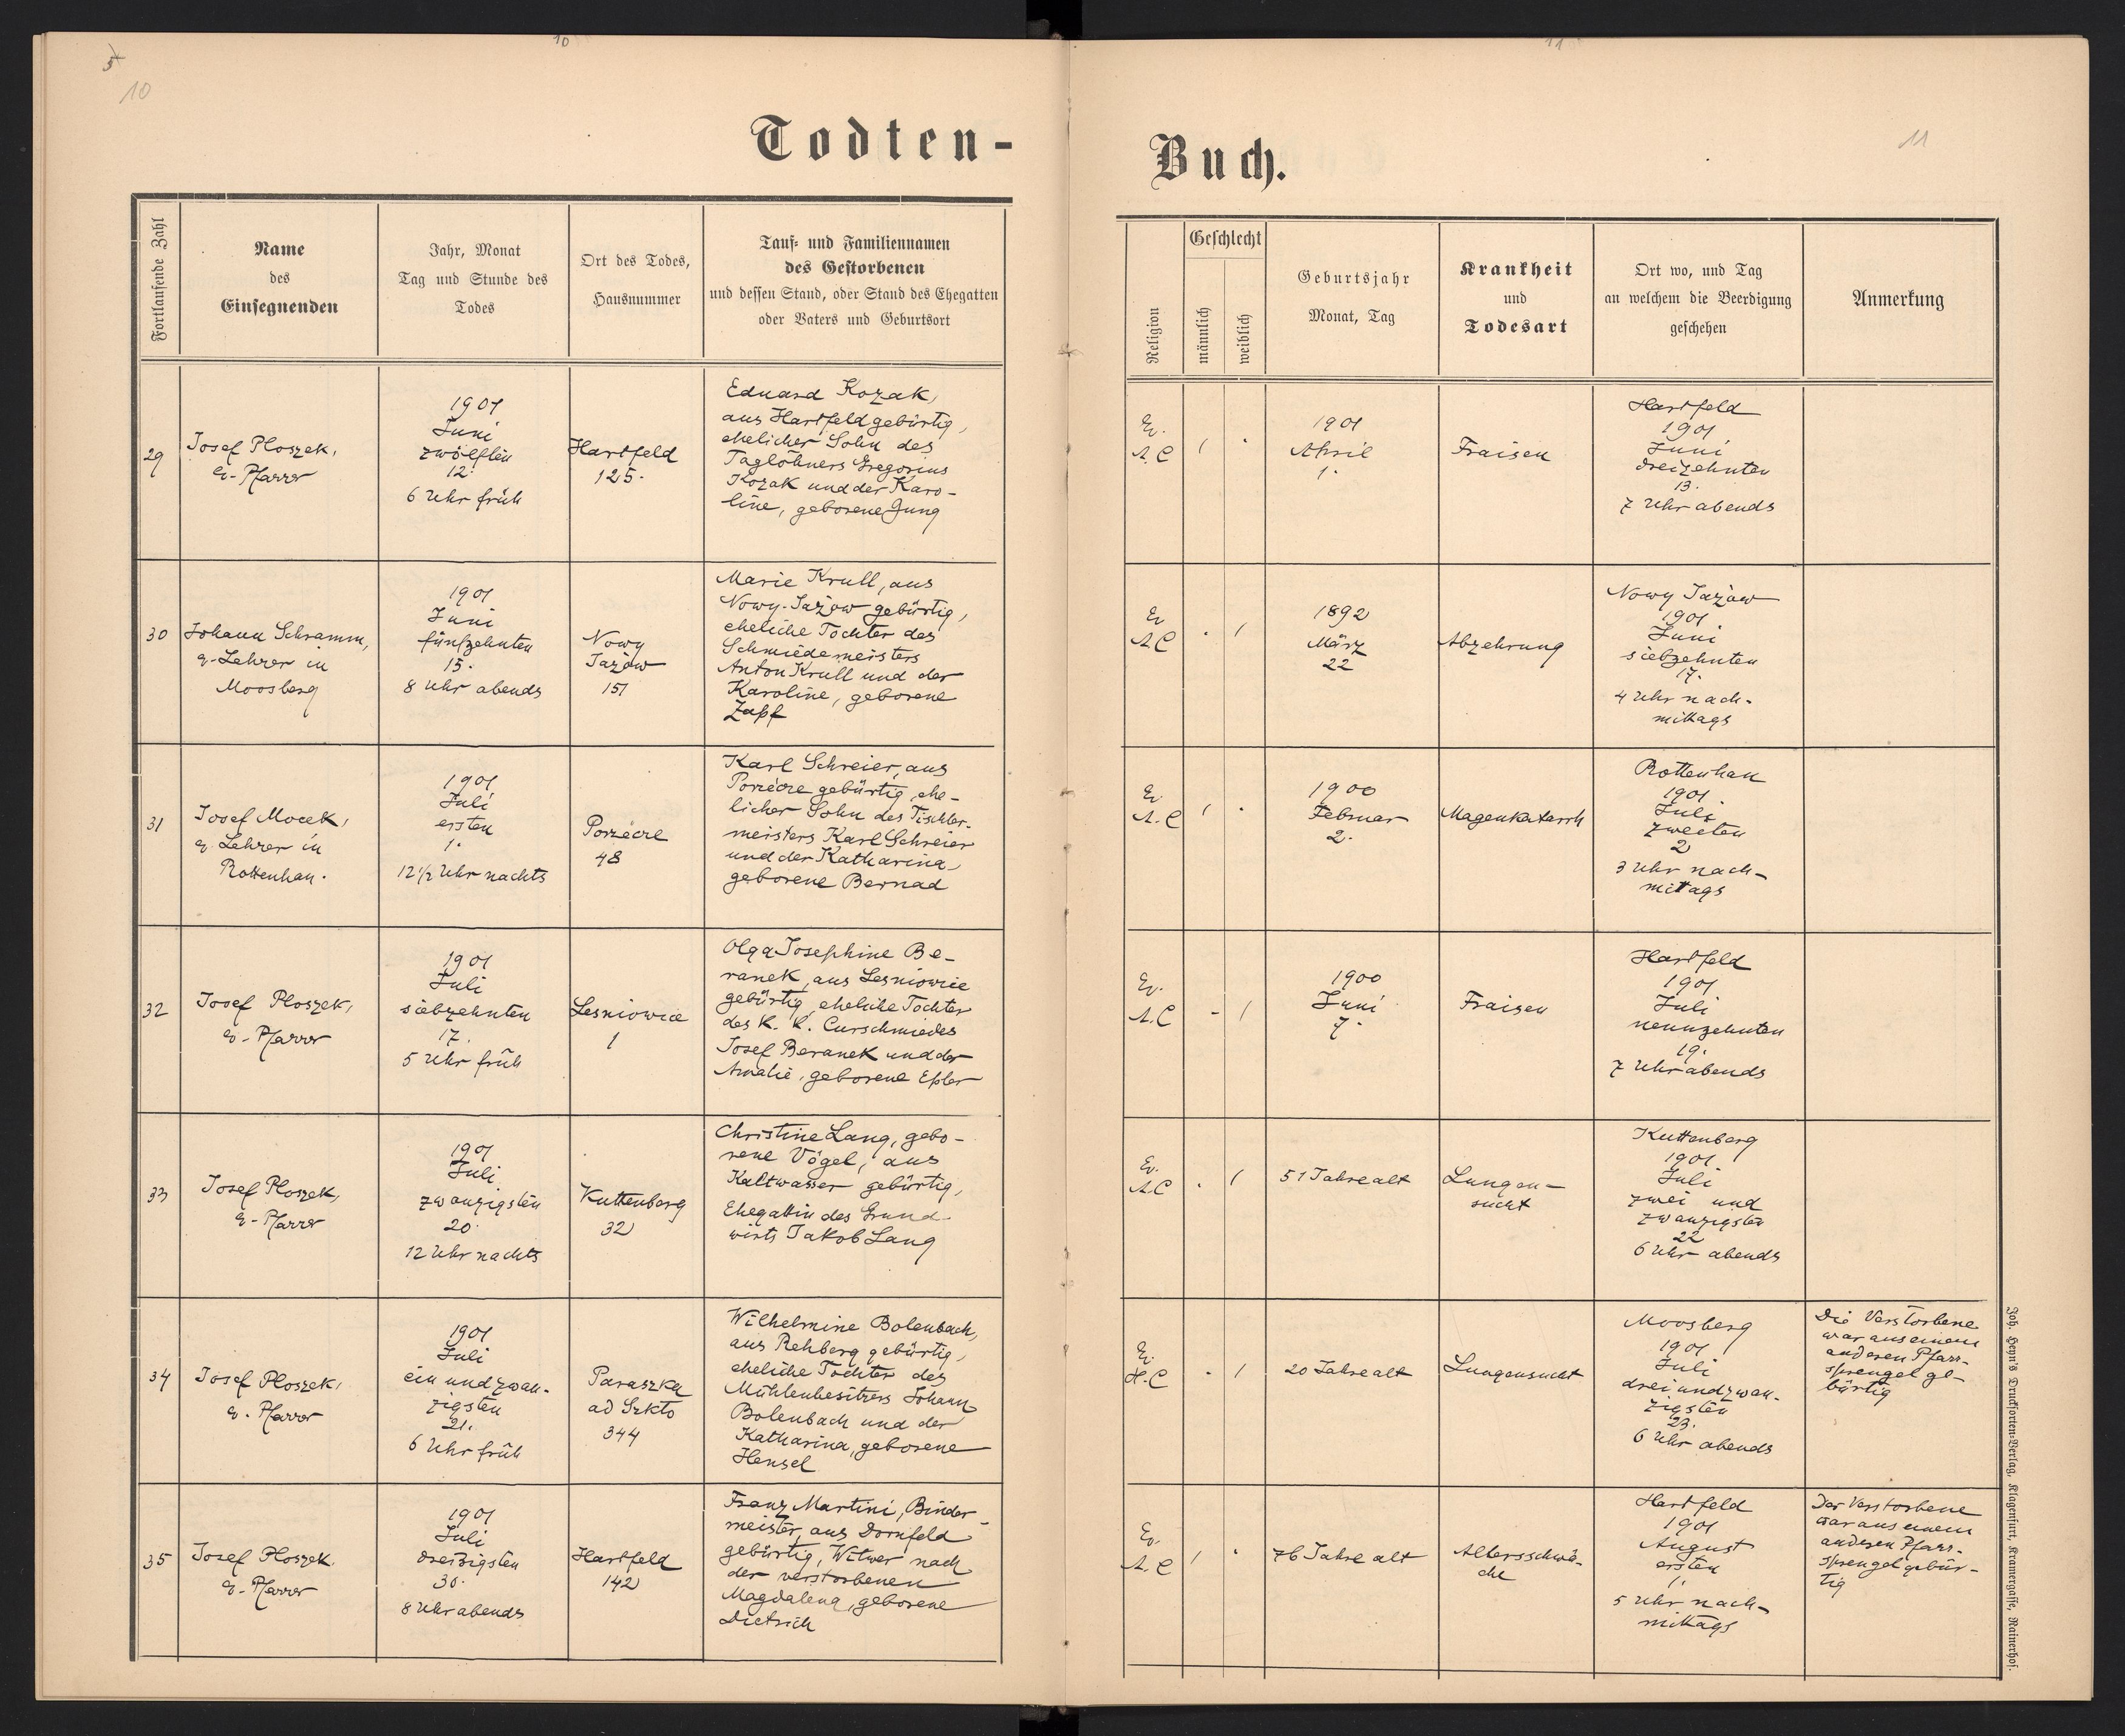 5
10
10
11
11
Todten-
Buch.
Fortlaufende Zahl
Name
des
Einsegnenden
Jahr, Monat
Tag und Stunde des
Todes
Ort des Todes,
Hausnummer
Tauf- und Familiennamen
des Gestorbenen
und dessen Stand, oder Stand des Ehegatten
oder Vaters und Geburtsort
Religion
Geschlecht
männlich
weiblich
Geburtsjahr
Monat, Tag
Krankheit
und
Todesart
Ort wo, und Tag
an welchem die Beerdigung
geschehen
Anmerkung
29
Josef Ploszek,
ev-Pfarrer
1901
Juni
zwölften
12.
6 Uhr früh
Hartfeld
125.
Eduard Kozak,
aus Hartfeld gebürtig,
ehelicher Sohn des
Taglöhners Gregorius
Kozak und der Karo-
line, geborene Jung
Ev.
A.C
1901
April
1.
Fraisen
Hartfeld
1901
Juni
dreizehnten
13.
7 Uhr abends
30
Johann Schramm,
ev-Lehrer in
Moosberg
1901
Juni
fünfzehnten
15.
8 Uhr abends
Nowy
Jazów
151
Marie Krull, aus
Nowy-Jazów gebürtig,
eheliche Tochter des
Schmiedemeisters
Anton Krull und der
Karoline, geborene
Zapf
Ev
A.C
1892
März
22
Abzehrung
Nowy Jazów
1901
Juni
siebzehnten
17.
4 Uhr nach-
mittags
31
Josef Mocek,
ev. Lehrer in
Rottenhan.
1901
Juli
ersten
1.
12 1/2 Uhr nachts
Porzécze
48
Karl Schreier, aus
Porzécze gebürtig, ehe-
licher Sohn des Tischler-
meisters Karl Schreier
und der Katharina,
geborene Bernad
Ev
A.C
1900
Februar
2.
Magenkatarrh
Rottenhan
1901.
Juli
zweiten
2
3 Uhr nach-
mittags
32
Josef Ploszek,
ev-Pfarrer
1901
Juli
siebzehnten
17.
5 Uhr früh
Lesniowice
1
Olga Josephine Be-
ranek, aus Lesniowice
gebürtig, eheliche Tochter
des k. k. Curschmiedes
Josef Beranek und der
Amalie, geborene Epler
Ev.
A.C
1900
Juni
7.
Fraisen
Hartfeld
1901
Juli
neunzehnten
19.
7 Uhr abends
33
Josef Ploszek,
ev-Pfarrer
1901
Juli
zwanzigsten
20.
12 Uhr nachts
Kuttenberg
32
Christine Lang, gebo-
rene Vögel, aus
Kaltwasser gebürtig,
Ehegattin des Grund-
wirts Jakob Lang
Ev.
A.C
51 Jahre alt
Lungen-
sucht
Kuttenberg
1901
Juli
zwei und
zwanzigsten
22
6 Uhr abends
34
Josef Ploszek,
ev. Pfarrer
1901
Juli
ein und zwan-
zigsten
21.
6 Uhr früh
Paraszka
ad Szkło
344
Wilhelmine Bolenbach,
aus Rehberg gebürtig,
eheliche Tochter des
Mühlenbesitzers Johann
Bolenbach und der
Katharina, geborene
Hensel
Ev.
H.C
20 Jahre alt
Lungensucht
Moosberg
1901
Juli
drei und zwan-
zigsten
23.
6 Uhr abends
Die Verstorbene
war aus einem
anderen Pfarr-
sprengel ge-
bürtig
35
Josef Ploszek,
ev-Pfarrer
1901
Juli
dreißigsten
30.
8 Uhr abends
Hartfeld
142
Franz Martini, Binder-
meister, aus Dornfeld
gebürtig, Witwer nach
der verstorbenen
Magdalena, geborene
Dietrich
Ev.
A.C
76 Jahre alt
Altersschwä-
che
Hartfeld
1901
August
ersten
1.
5 Uhr nach-
mittags
Der Verstorbene
war aus einem
anderen Pfarr-
sprengel gebür-
tig
Joh. Heyn's Drucksorten-Verlag, Klagenfurt, Kramergasse, Rainerhof.